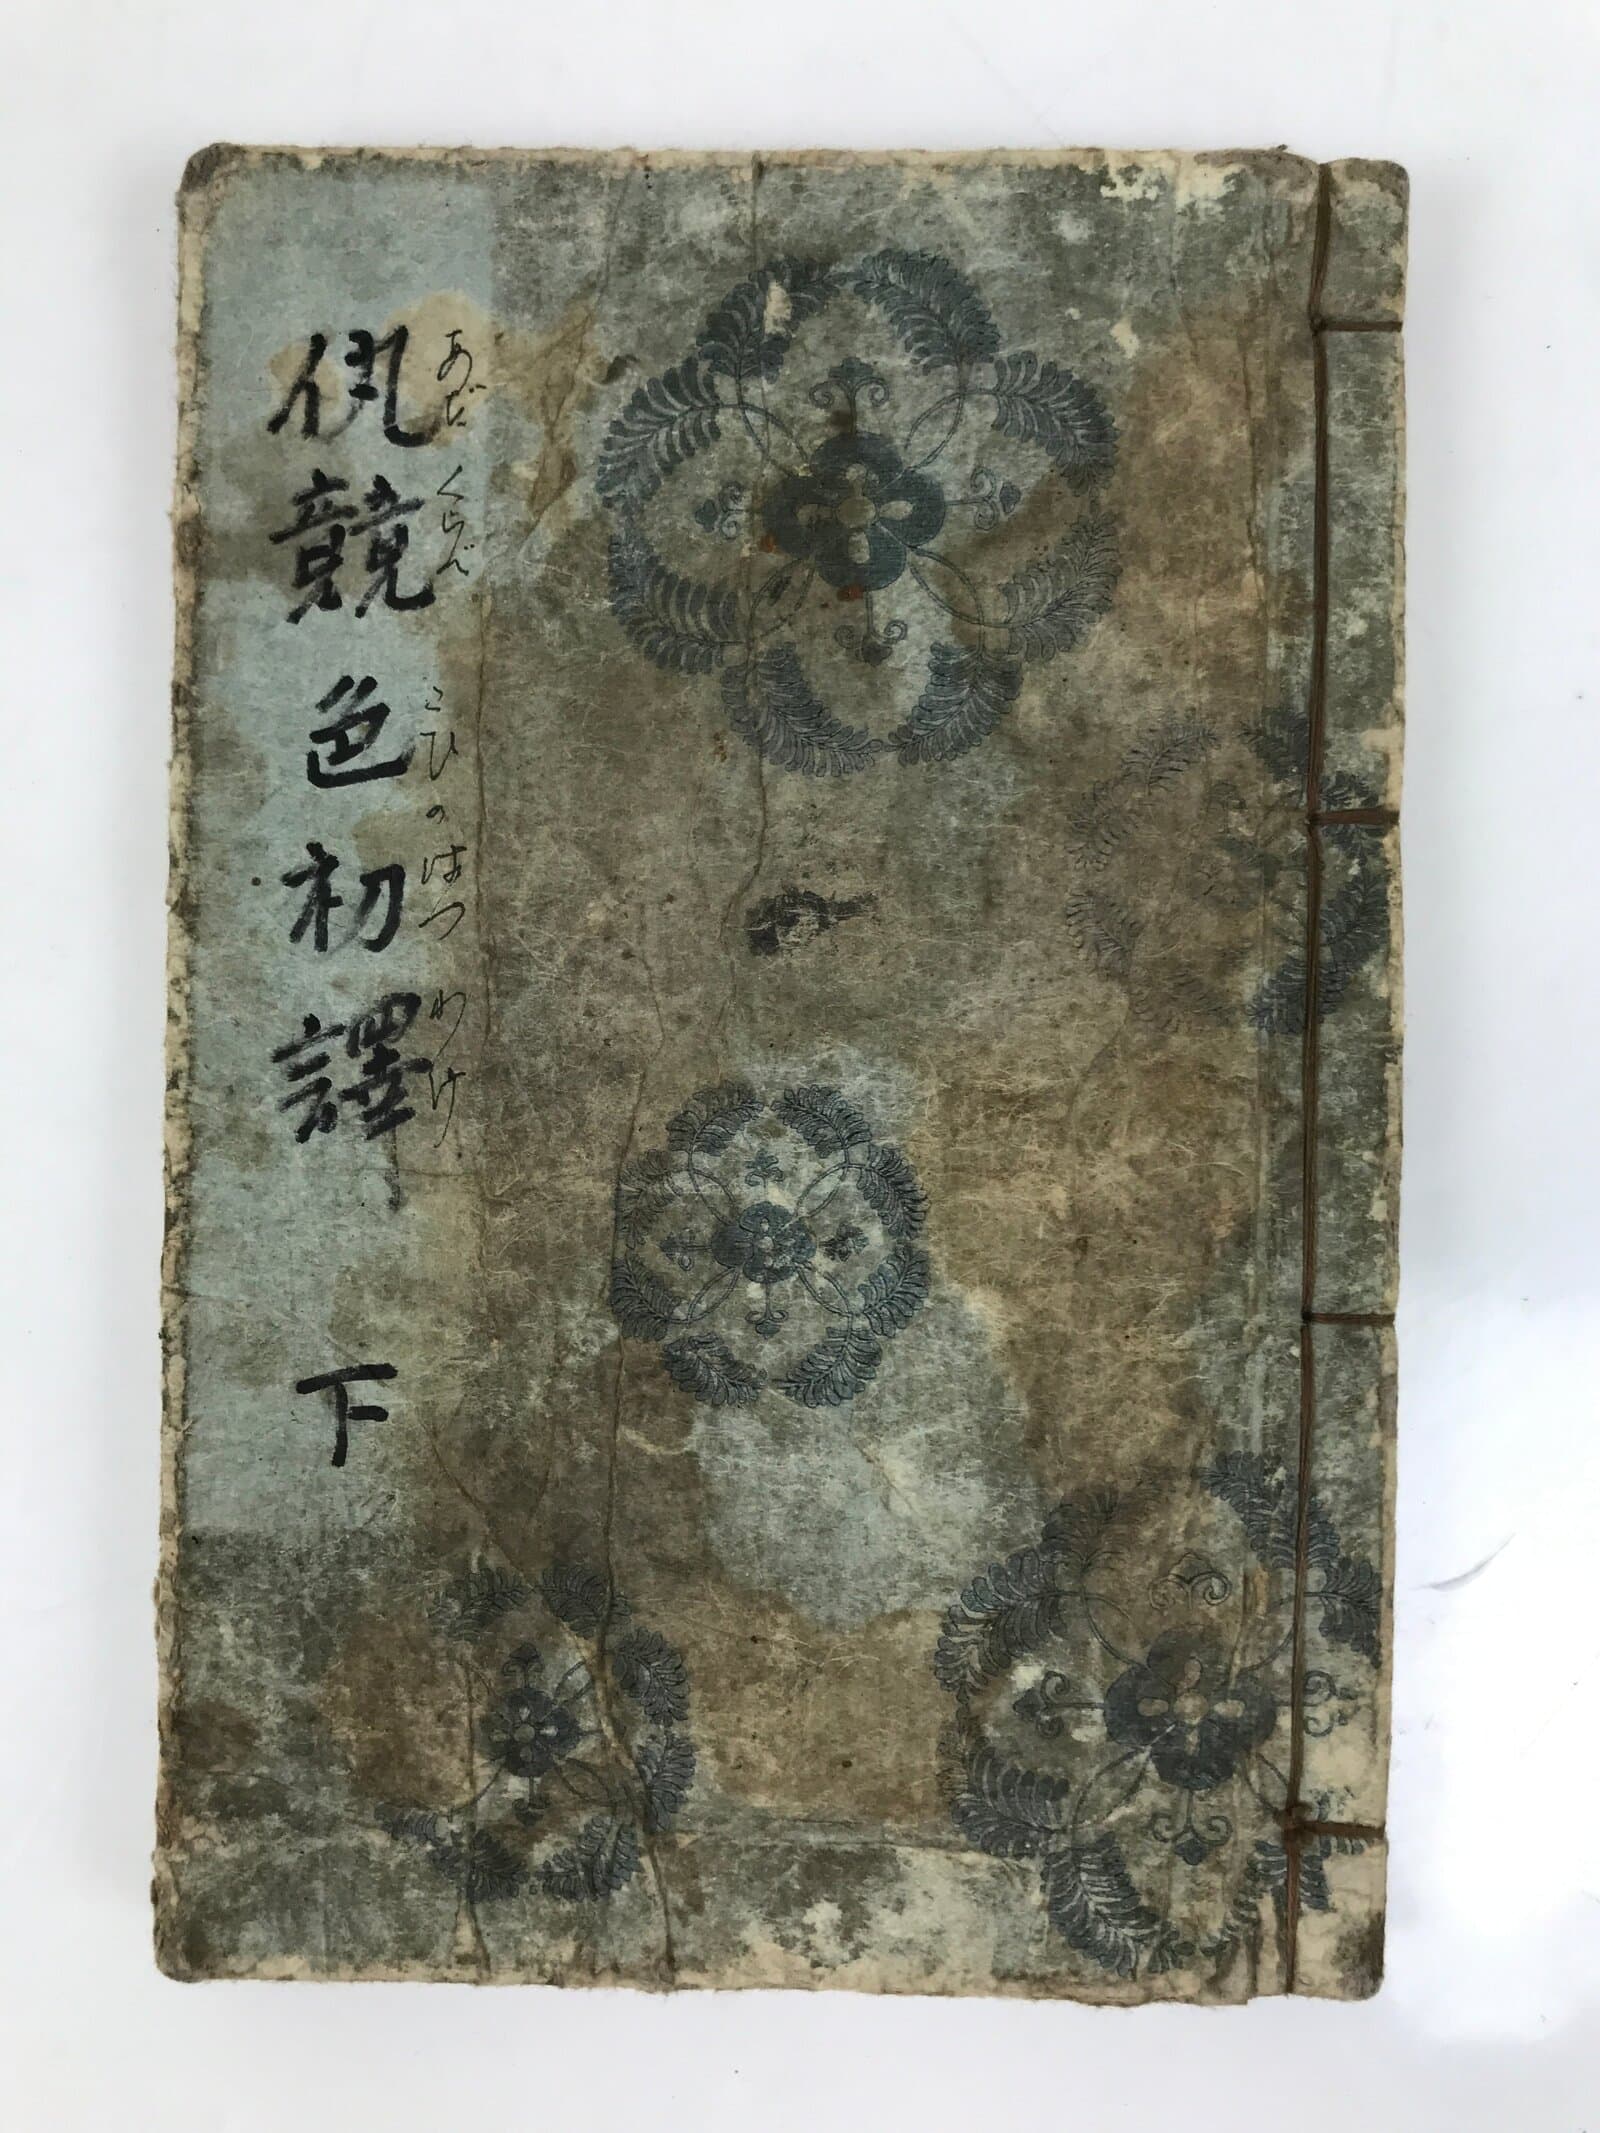 あだくらべこひのはつわけ
仇競色初譯 下